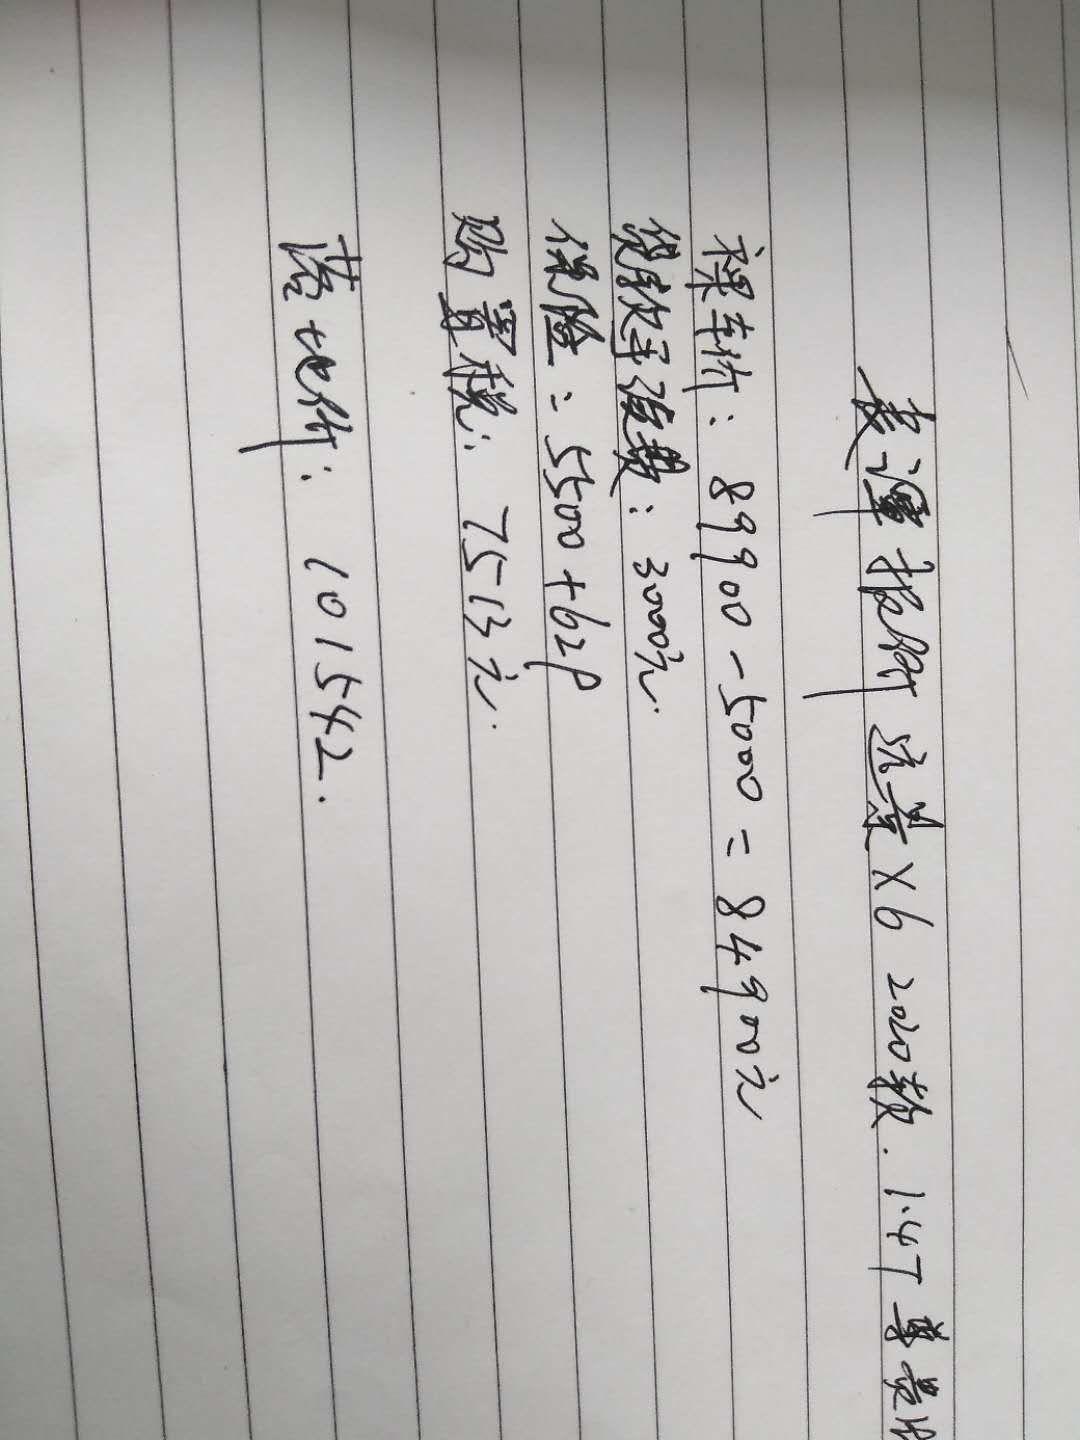 袁潭报价 远景X6 2020款.1.4T 尊贵
裸车价:89900-5000=84900元
贷款手续费:3000元.
保险:5500+629
购置税:7513元.
落地价:101542.